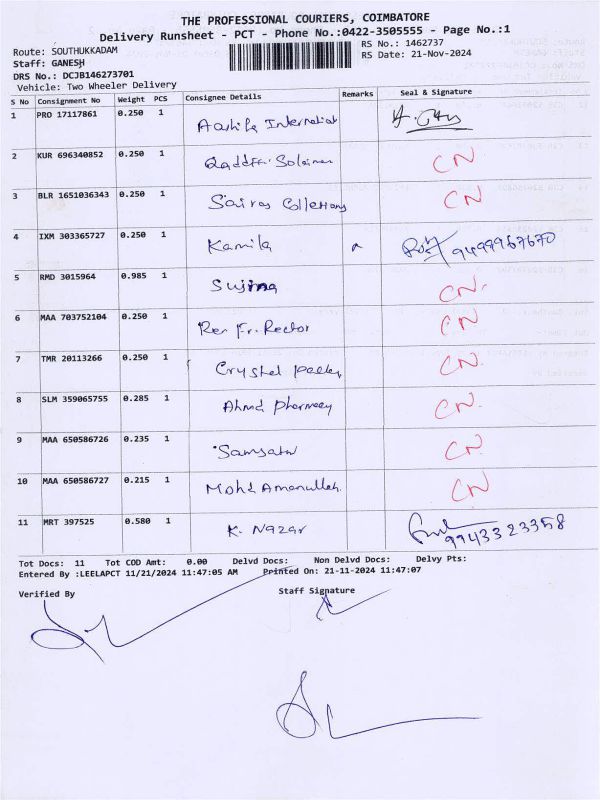 THE PROFESSIONAL COURIERS, COIMBATORE
Delivery Runsheet - PCT - Phone No.:0422-3505555 - Page No.:1
Route: SOUTHUKKADAM RS No.: 1462737
Staff: GANESH RS Date: 21-Nov-2024
DRS No.: DCJB146273701
Vehicle: Two Wheeler Delivery
S No Consignment No Weight PCS Consignee Details Remarks Seal & Signature
1 PRO 17117861 0.250 1
2 KUR 696340852 0.250 1 CN
3 BLR 1651036343 0.250 1 CN
4 IXM 303365727 0.250 1 Kamila 9499967670
5 RMD 3015964 0.985 1 CN.
6 MAA 703752104 0.250 1 Rev Fr. Rector CN
7 TMR 20113266 0.250 1 Crystal CN.
8 SLM 359065755 0.285 1 CN.
9 MAA 650586726 0.235 1 CN.
10 MAA 650586727 0.215 1 Mohd Amanullah. CN
11 MRT 397525 0.580 1 K. Nazar 9943323358
Tot Docs: 11 Tot COD Amt: 0.00 Delvd Docs: Non Delvd Docs: Delvy Pts:
Entered By :LEELAPCT 11/21/2024 11:47:05 AM Printed On: 21-11-2024 11:47:07
Verified By Staff Signature